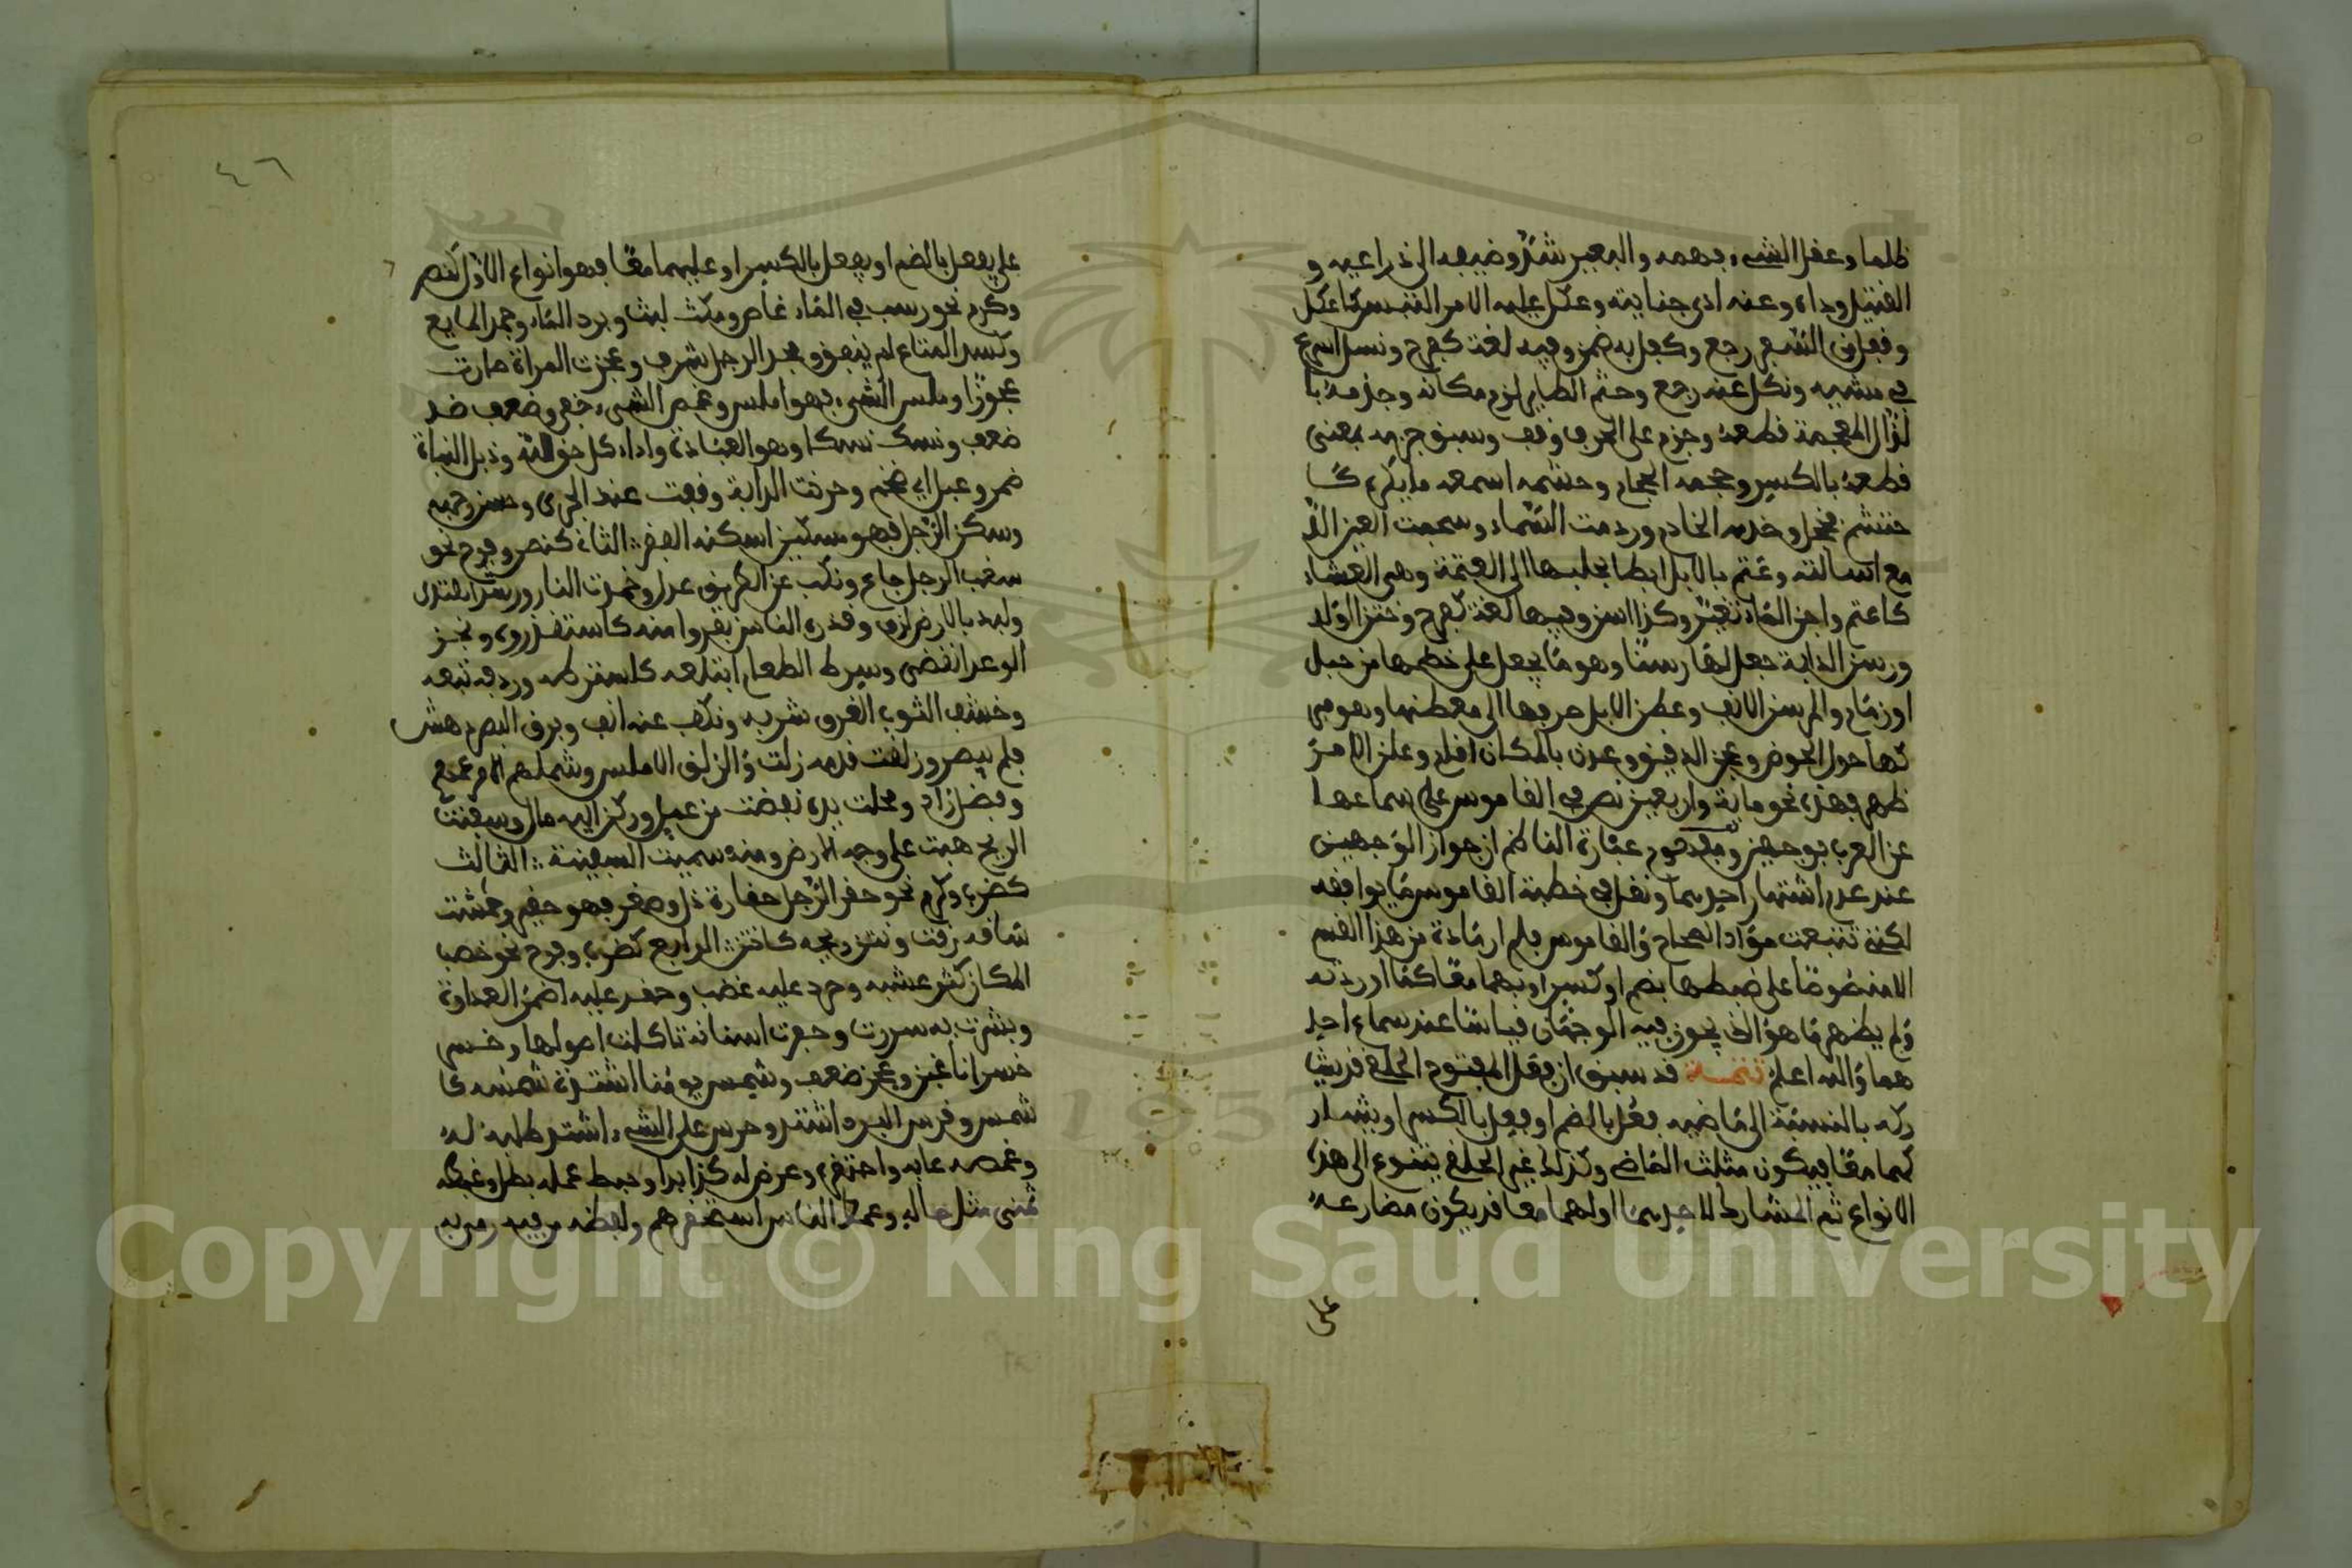 ظلما وعقل الشيء فهمه والبعير شد وظيفه الى ذراعيه و
القتيل وداه وعنه ادى جنايته وعكل عليه الامر التبس كاعكل
وقفل من السفر رجع وكفل به ضمن وفيه لغة كفرح ونسل اسرع
في مشيه ونكل عنه رجع وجثم الطاير لزم مكانه وجذمه با
لذال المعجمة قطعه وجزم على الحرف وقف وسبق جزمه بمعنى
قطعه بالكسر وحجمه الحجام وحشمه اسمعه ما يكره كا
حتشم فخجل وخدمه الخادم وردمت السماء وسجمت العين الد
مع اسالته وعتم بالابل ابطا بحلبها الى العتمة وهى العشاء
كاعتم واجن الماء تغير وكذا اسن وفيها لغة كفرح وختن الولد
ورسن الدابة جعل لها رسنا وهو ما يجعل على خطمها من حبل
او زمام والمرسن الانف وعطن الابل صرفها الى معطنها وهو مبر
كها حول الحوض وعجن الدقيق وعدن بالمكان اقام وعلن الامر
ظهر فهذه نحو ماية واربعين نص في القاموس على سماعها
عن العرب بوجهين عبارة الناظم ان جواز الوجهين
عند عدم اشتهار احدهما ونقل في خطبة القاموس ما يوافقه
لكني تتبعت مواد الصحاح والقاموس فلم ار مادة من هذا القسم
الا منصوصا على ضبطها بضم او كسر او بهما معا كما اوردته
ولم يظهر ما هو الذي يجوز فيه الوجهان قياسا عند سماع احد
هما والله اعلم تتمـــة قد سبق ان فعل المفتوح الحلقي قد يشا
ركه بالنسبة الى ماضيه فعل بالضم او فعل بالكسر او يشار
كهما معا فيكون مثلث الماضي وكذلك غير الحلقي يتنوع الى هذه
الانواع ثم المشارك لاحدهما او لهما معا قد يكون مضارعه
على
٤٦
على يفعل بالضم او يفعل بالكسر او عليهما معا فهو انواع الاول كنصر
وكرم نحو رسب في الماء غاص ومكث لبث وبرد الماء وجمد المايع
وكسد المتاع لم ينفق ومجد الرجل شرف وعجزت المراة صارت
عجوزا وملس الشيء فهو املس وغمض الشيء خفي وضعف ضد
ضعف ونسك نسكا وهو العبادة واداء كل حق لله وذبل النبات
ضمر وعبل اي ضخم وحرنت الدابة وقفت عند الجرى وحسن وجهه
وسكن الرجل فهو مسكين اسكنه الفقر الثاني كنصر وفرح نحو
سغب الرجل جاع ونكب عن الطريق عدل وخمدت النار ورشد اهتدى
ولبد بالارض لزق وقذره الناس نفروا منه كاستقذروه ونجز
الوعد انقضى وسرط الطعام ابتلعه كاسترطه وردفه تبعه
ونشف الثوب العرق شربه ونكف عنه انف وبرق البصر دهش
فلم يبصر وزلقت قدمه زلت والزلق الاملس وشملهم الامر عمهم
وفضل زاد ومجلت يده نفطت من عمل وركن اليه مال وسفنت
الريح هبت على وجه الارض ومنه سميت السفينة الثالث
كضرب وكرم نحو حقر الرجل حقارة ذل وصغر فهو حقير وحمشت
ساقه دقت ونتن ريحه كانتن الرابع كضرب وفرح نحو خصب
المكان كثر عشبه وحرد عليه غضب وحقد عليه اضمر العداوة
وبشرت به سررت وحفرت اسنانه تاكلت اصولها وخسر
خسرانا غبن وعجز ضعف وشمس يومنا اشتدت شمسه كا
شمس وقرس البرد اشتد وحرص على الشيء اشتد طلبه له
وغمصه عابه واحتقره وعرض له كذا بدا وحبط عمله بطل وغبطه
تمنى مثل حاله وغمط الناس استحقرهم ولفظه من فيه رمى به
Copyright © King Saud University
1957